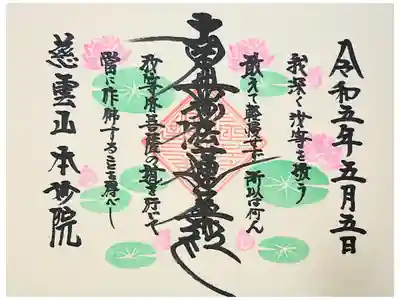 令和五年五月五日
我深く汝等を敬う
敢えて軽慢せず 所以は何ん
南無妙法蓮華経
汝等皆菩薩の道を行じて
當に作佛することを得べし
慈雲山 本妙院